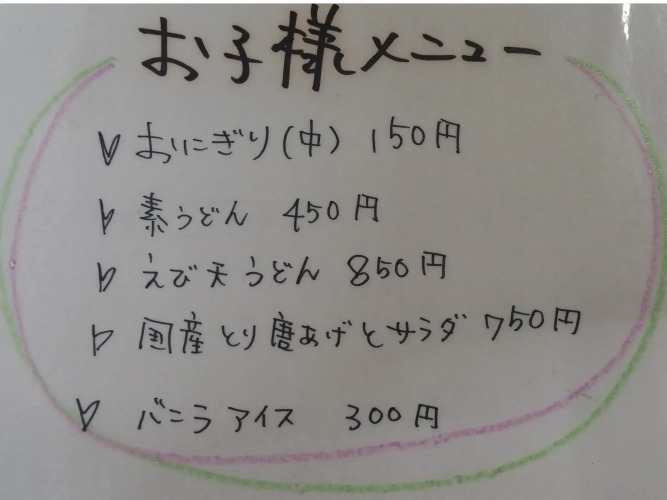 お子様メニュー
おにぎり(中) 150円
素うどん 450円
えび天うどん 850円
国産とり唐あげとサラダ 750円
バニラアイス 300円